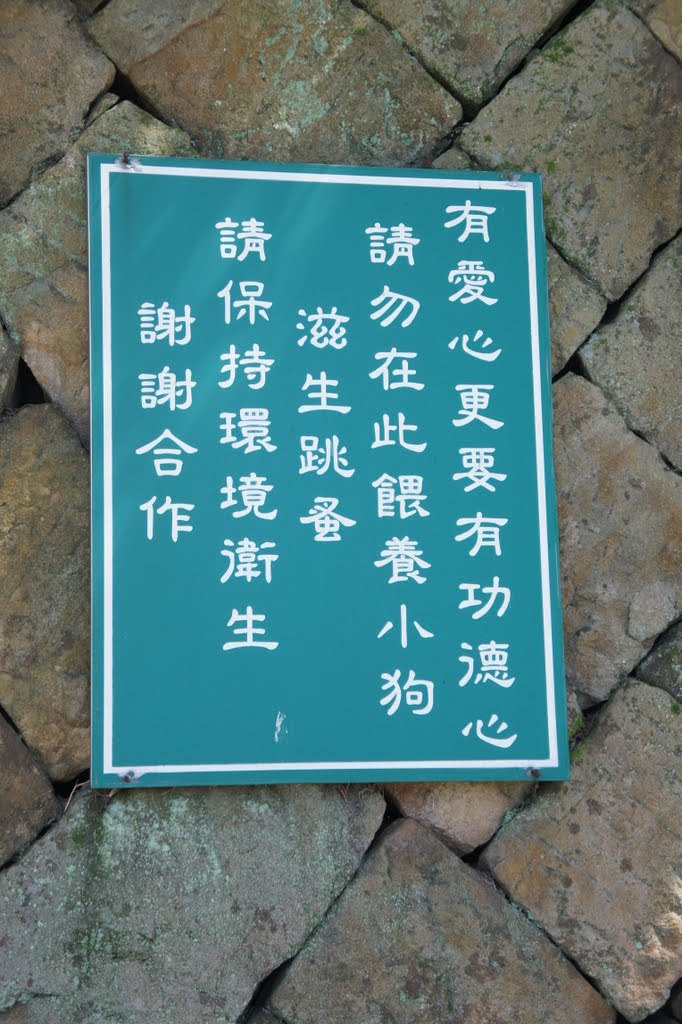 有愛心更要有功德心
請勿在此餵養小狗
滋生跳蚤
請保持環境衛生
謝謝合作